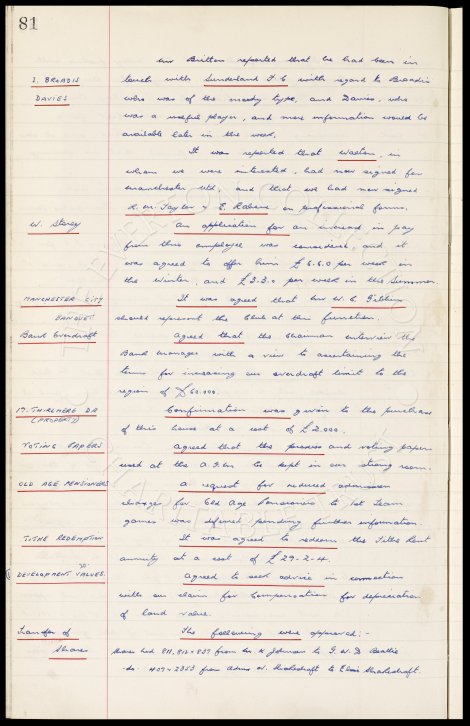 81
Mr Britton reported that he had been in
I. BROADIS touch with Sunderland F.C with regard to Broadis
DAVIES who was of the moody type, and Davies, who
was a useful player, and more information would be
available later in the week.
It was reported that Weston, in
whom we were interested, had now signed for
Manchester Utd, and that we had now signed
K. M. Taylor & E. on professional forms.
W. Storey An application for an increase in pay
from this employee was considered, and it
was agreed to offer him £6.6.0 per week in
the Winter, and £ per week in the Summer.
MANCHESTER CITY It was agreed that Mr W. C.
BANQUET should represent the Club at this function.
Bank Overdraft Agreed that the Chairman interview the
Bank Manager with a view to ascertaining the
terms for increasing our overdraft limit to the
region of £60.000.
17. THIRLMERE DR Confirmation was given to the purchase
(PROPERTY) of this house at a cost of £2,000.
VOTING PAPERS Agreed that the proxies and voting papers
used at the A.G.M. be kept in our strong room.
OLD AGE PENSIONERS A request for reduced admission
charges for Old Age Pensioners to 1st Team
games was defered pending further information.
TITHE REDEMPTION It was agreed to redeem the Tithe Rent
annuity at a cost of £29-2-4.
DEVELOPMENT VALUES. Agreed to seek advice in connection
with our claim for Compensation for depreciation
of land value.
Transfer of The following were approved:-
Shares Shares Nos 811, 812 & 837 from Mr. K Johnson to
-do- 407 & 2353 from